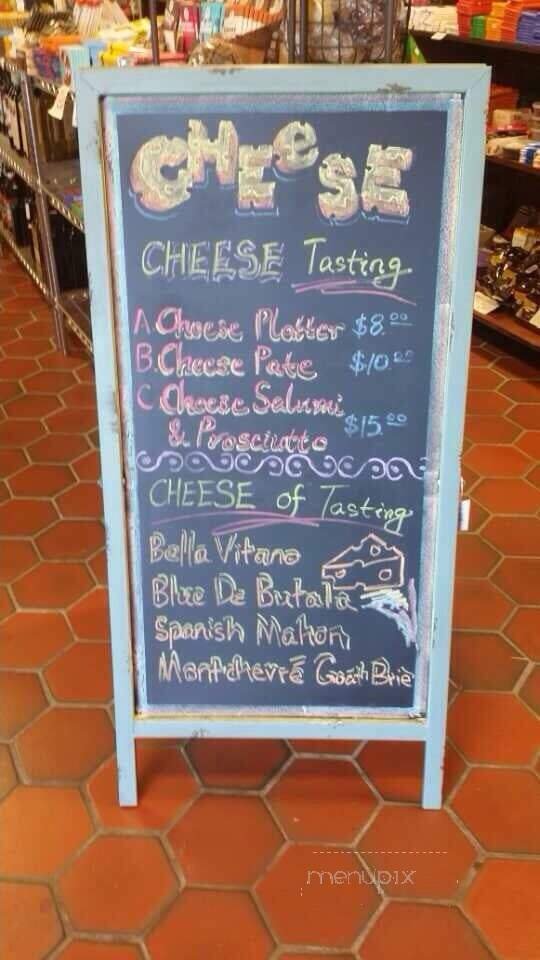 CHEESE
CHEESE Tasting
A Cheese Platter $8.00
B. Cheese Pate $10.00
C Cheese Salumi
& Prosciutto $15.00
CHEESE of Tasting
Bella Vitano
Blue De Bufala
Spanish Mahon
Montchevré Goat Brie
menupix